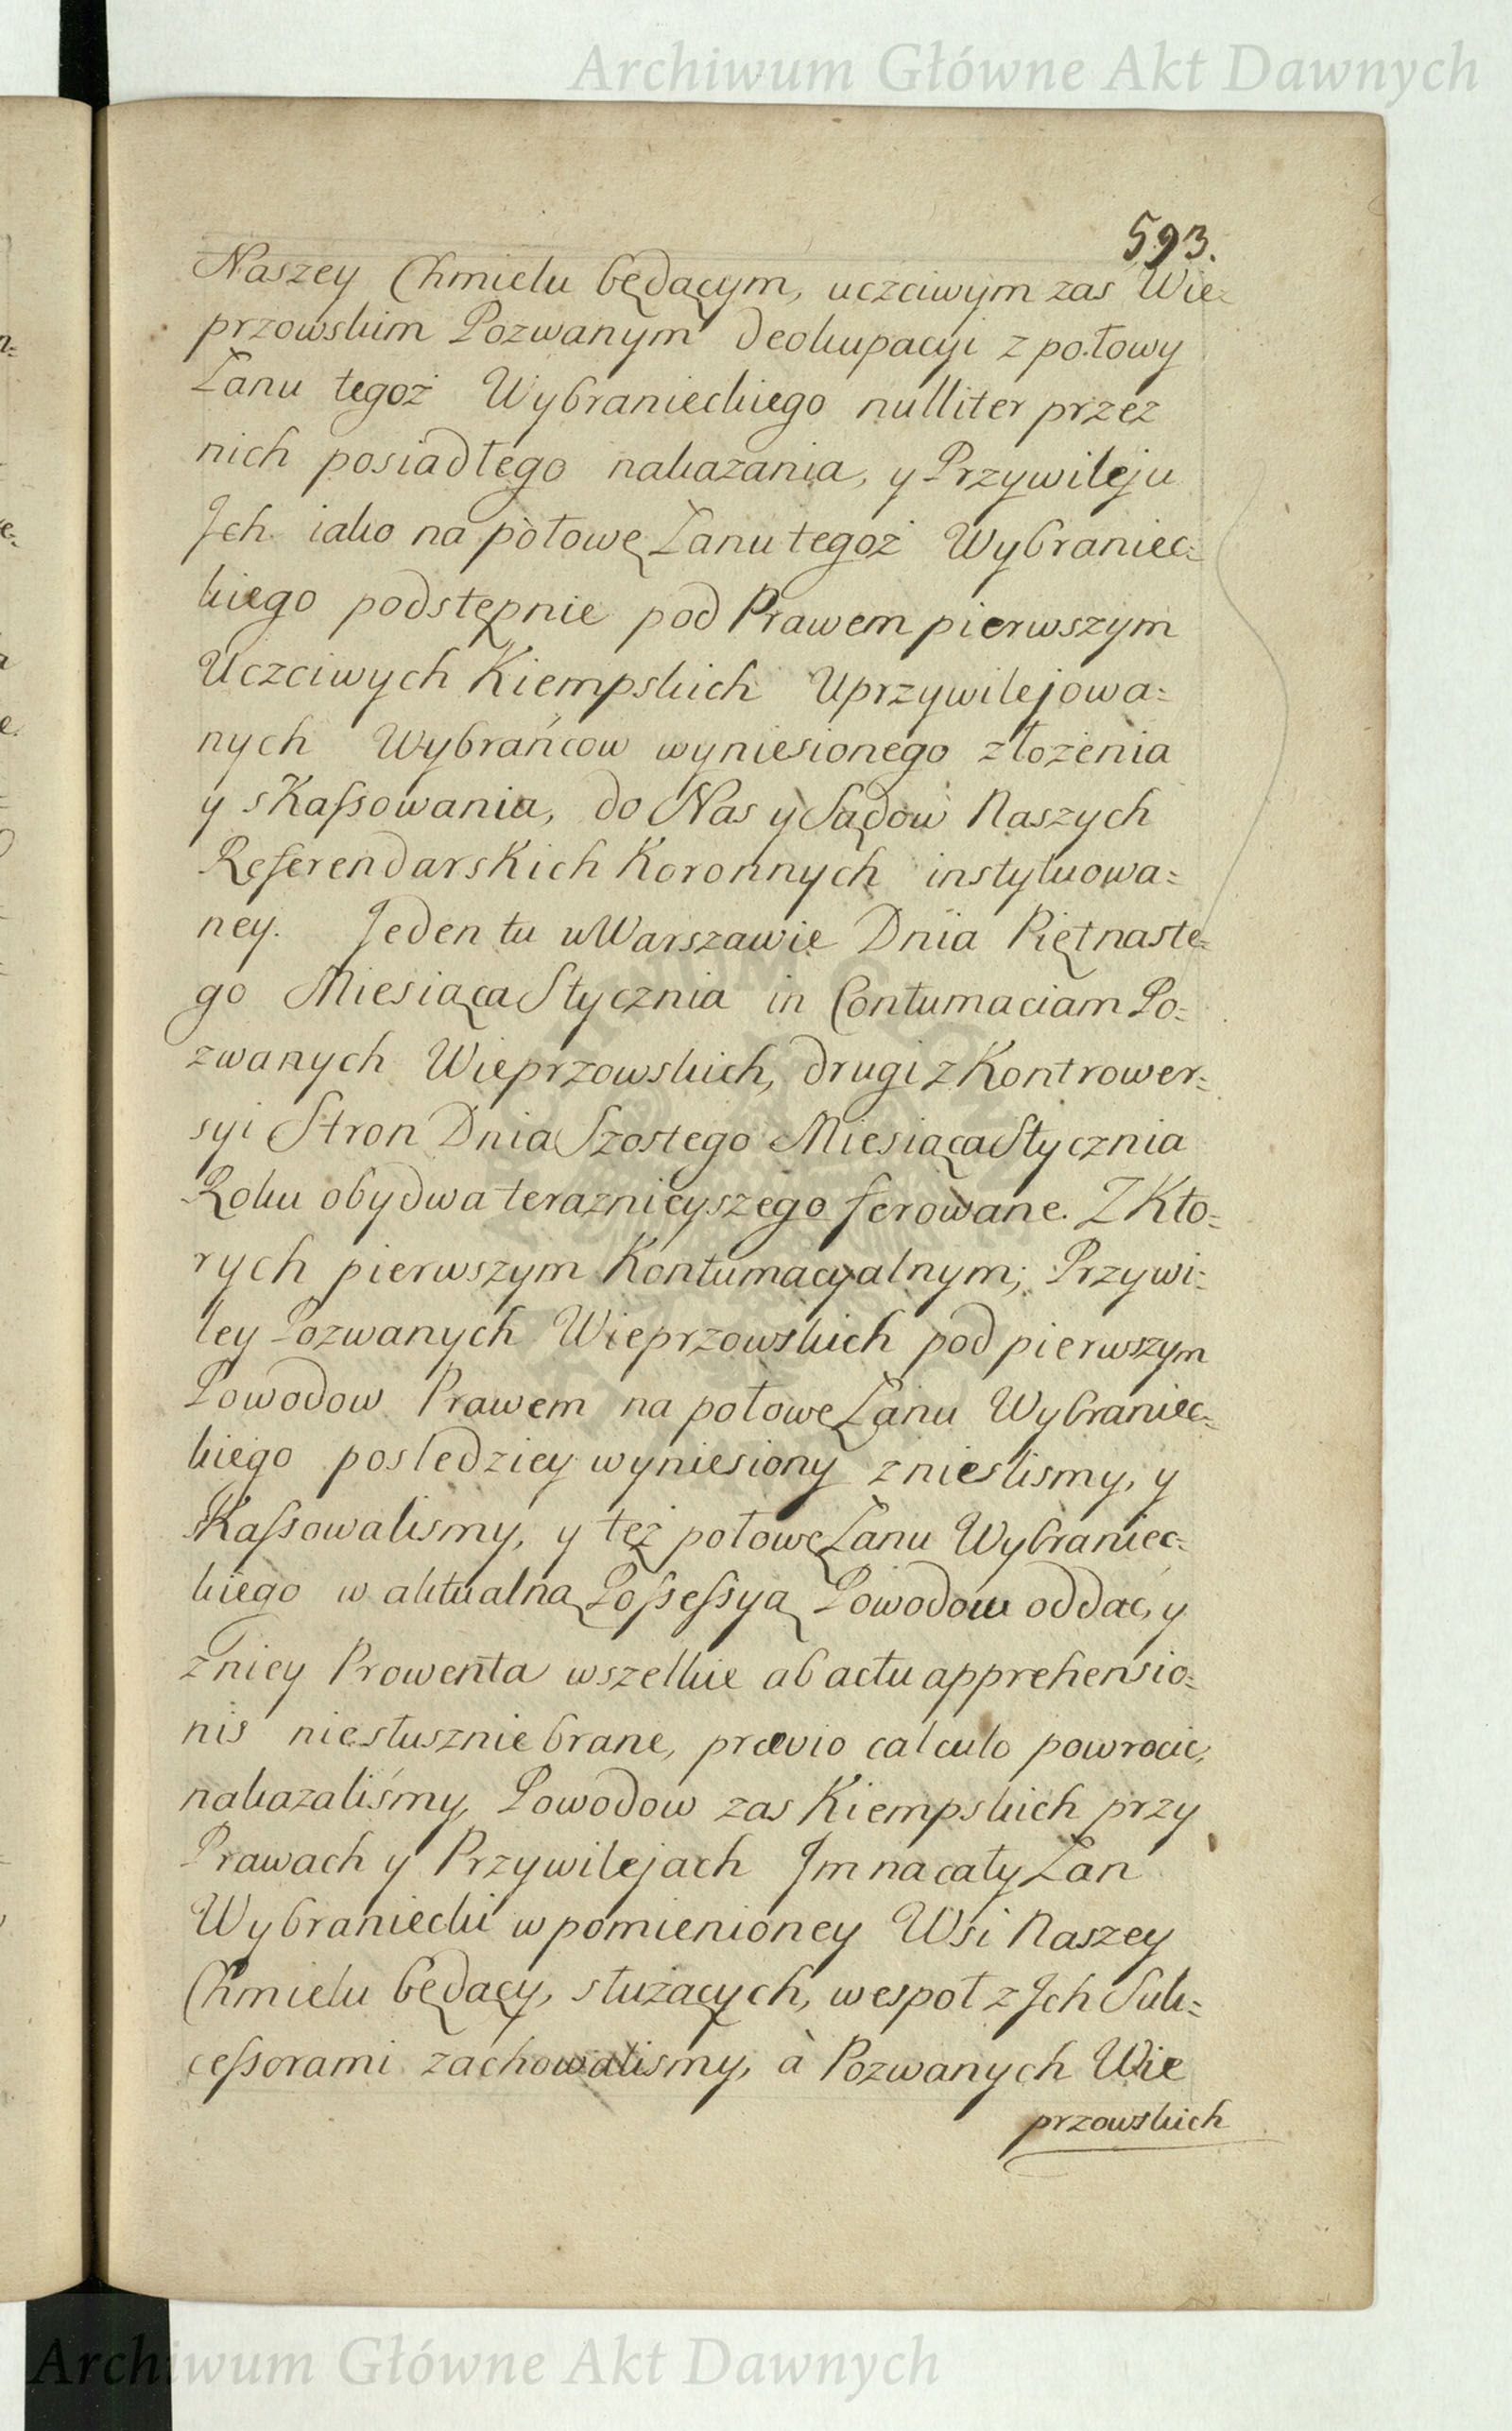 Archiwum Główne Akt Dawnych
593.
Naszey Chmielu będącym, uczciwym zas Wie=
przowskim Pozwanym deokupacyi z połowy
Łanu tegoż Wybranieckiego nulliter przez
nich posiadłego nakazania, y Przywileju
Ich iako na połowę Łanu tegoż Wybraniec=
kiego podstępnie pod Prawem pierwszym
Uczciwych Kiempskich Uprzywilejowa=
nych Wybrańcow wyniesionego złożenia
y skaſsowania, do Nas y Sądow Naszych
Referendarskich Koronnych instytuowa=
ney. Jeden tu w Warszawie Dnia Piętnaste=
go Miesiąca Stycznia in Contumaciam Po=
zwanych Wieprzowskich, drugi z Kontrower=
syi Stron Dnia Szostego Miesiąca Stycznia
Roku obydwa teraznieyszego ferowane. Z Kto=
rych pierwszym Kontumacyalnym; Przywi=
ley Pozwanych Wieprzowskich pod pierwszym
Powodow Prawem na połowę Łanu Wybraniec=
kiego posledziey wyniesiony znieslismy, y
skaſsowalismy, y tęż połowę Łanu Wybraniec=
kiego w aktualną Poſseſsyą Powodow oddac, y
z niey Prowenta wszelkie ab actu apprehensio=
nis niesłusznie brane, prævio calculo powrocic,
nakazaliśmy, Powodow zas Kiempskich przy
Prawach y Przywilejach Im na cały Łan
Wybraniecki w pomienioney Wsi Naszey
Chmielu będący, służących, wespoł z Ich Suk=
ceſsorami zachowalismy, à Pozwanych Wie
przowskich
Archiwum Główne Akt Dawnych